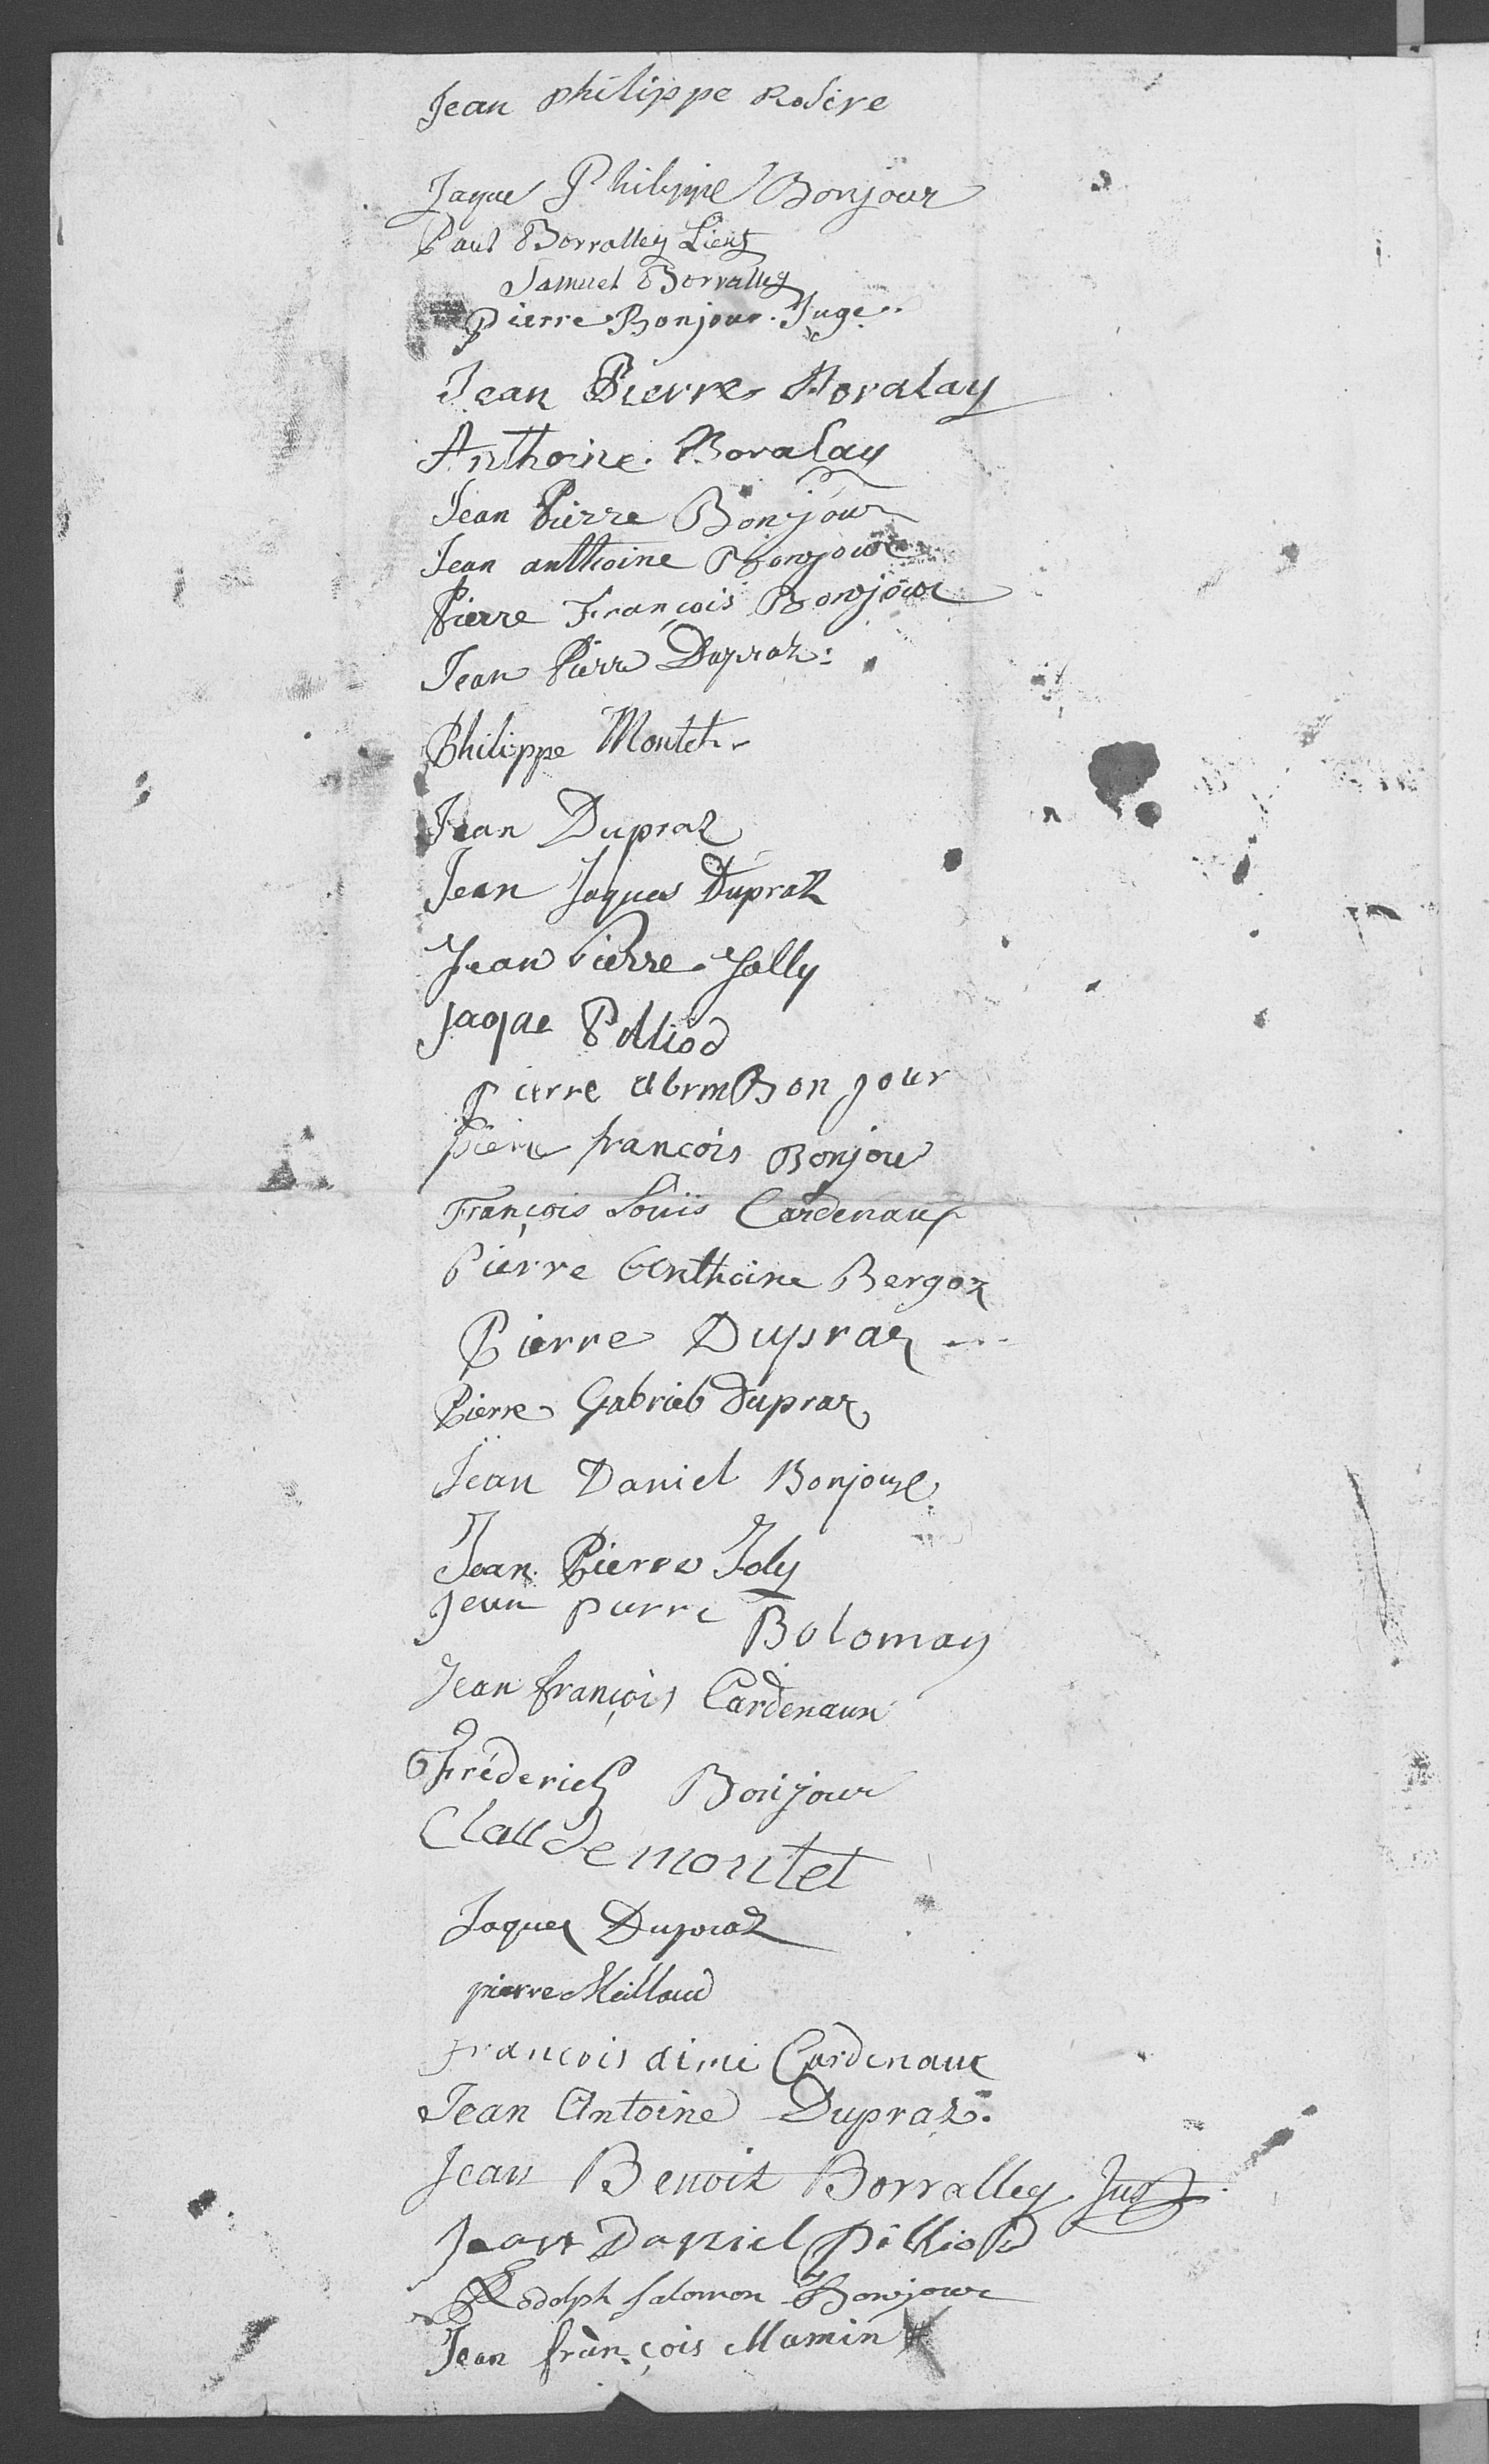 Jean philippe Rosire
Jaque Philippe Bonjour
Paul Borralley Lieut
Samuel Borralley
Pierre Bonjour. Juge.
Jean Pierre Boralay
Anthoine. Boralay
Jean Pierre Bonjour
Jean anthoine Bonjour
Pierre François Bonjour
Jean Pierre Dupraz:
Philippe Montet
Jean Dupraz
Jean Jaques Dupraz
Jean Pierre Jolly
Jaque Pilliod
pierre abrm Bonjour
pierre françois Bonjour
François Louis Cardenaux
Pierre Anthoine Bergoz
Pierre Dupraz
Pierre Gabriel Dupraz
Jean Daniel Bonjour
Jean Pierre Joly
Jean pierre Bolomay
Jean françois Cardenaux
Fréderich Bonjour
Claude montet
Jaques Dupraz
pierre Meillaud
François aimé Cardenaux
Jean Antoine Dupraz.
Jean Benoit Borralley Jug
Jean Daniel Pilliod
Rodolph Salomon Bonjour
Jean françois Mamin